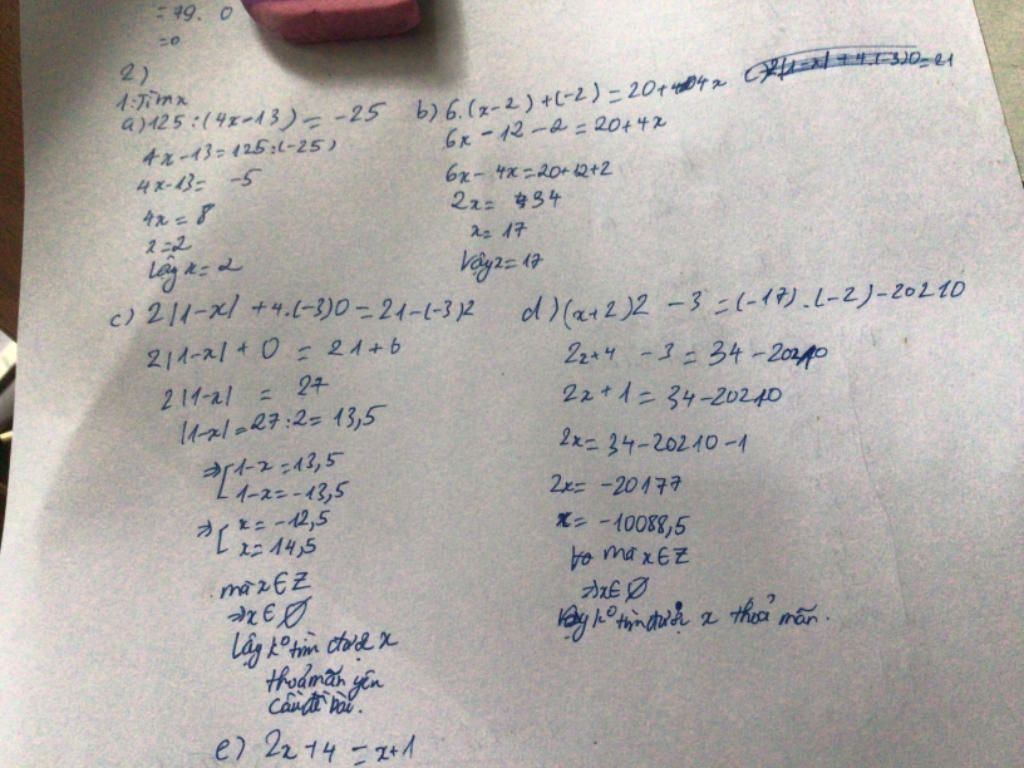 = 79. 0
=0
2)
1. Tìm x
a) 125 : (4x-13) = -25
4x-13=125:(-25)
4x-13= -5
4x = 8
x=2
Vậy x= 2
b) 6.(x-2)+(-2)=20+4x
6x-12-2=20+4x
6x-4x=20+12+2
2x= 34
x= 17
Vậy x=17
c) 2|1-x| +4.(-3)0 = 21-(-3)2
2|1-x| + 0 = 21+6
2|1-x| = 27
|1-x|=27:2=13,5
⇒[1-x=13,5
1-x=-13,5
⇒[x=-12,5
x=14,5
mà x∈Z
⇒x∈∅
Vậy k° tìm được x
thoả mãn yêu
cầu đề bài.
d) (x+2)2 -3 = (-17).(-2)-20210
2x+4 -3 = 34-20210
2x+1 = 34-20210
2x= 34-20210-1
2x= -20177
x= -10088,5
mà x∈Z
⇒x∈∅
Vậy k° tìm được x thoả mãn.
e) 2x+4 = x+1